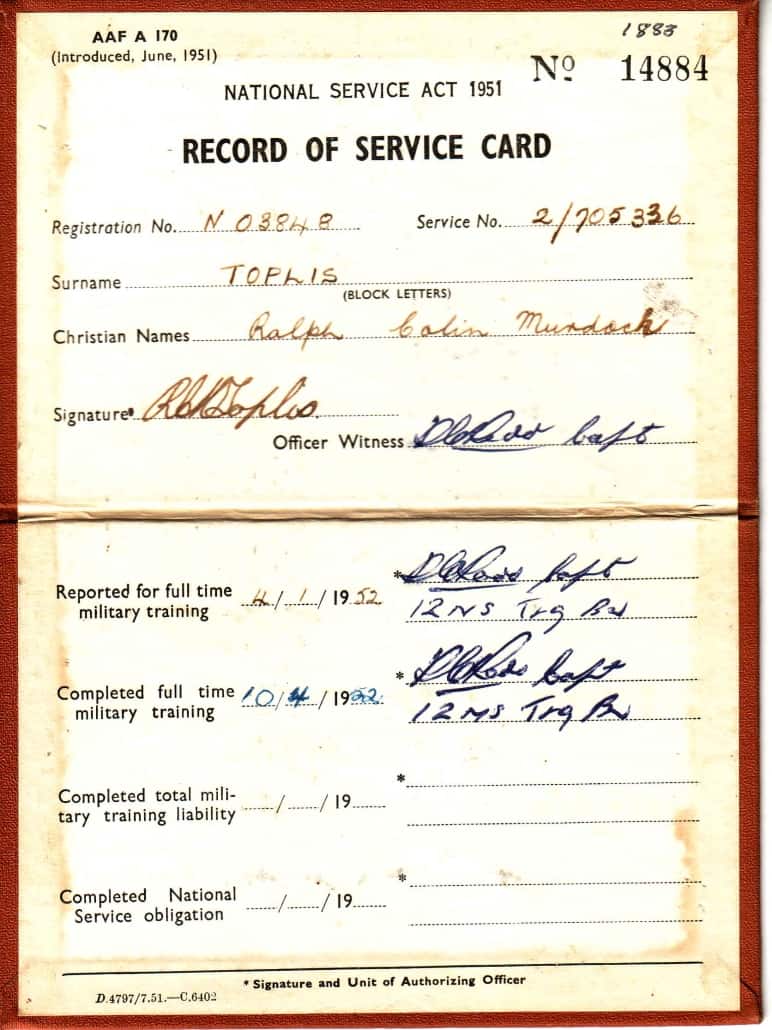 AAF A 170
(Introduced, June, 1951)
1883
Nº 14884
NATIONAL SERVICE ACT 1951
RECORD OF SERVICE CARD
Registration No. N 03848 Service No. 2/705336
Surname TOPLIS
(BLOCK LETTERS)
Christian Names Ralph Colin Murdoch
Signature Toplis
Officer Witness Capt
Reported for full time
military training 4/1/1952 * Capt
12 NS Trg Bn
Completed full time
military training 10/4/1952 * Capt
12 NS Trg Bn
Completed total mili-
tary training liability / / 19 *
Completed National
Service obligation / / 19 *
* Signature and Unit of Authorizing Officer
D.4797/7.51.—C.6402